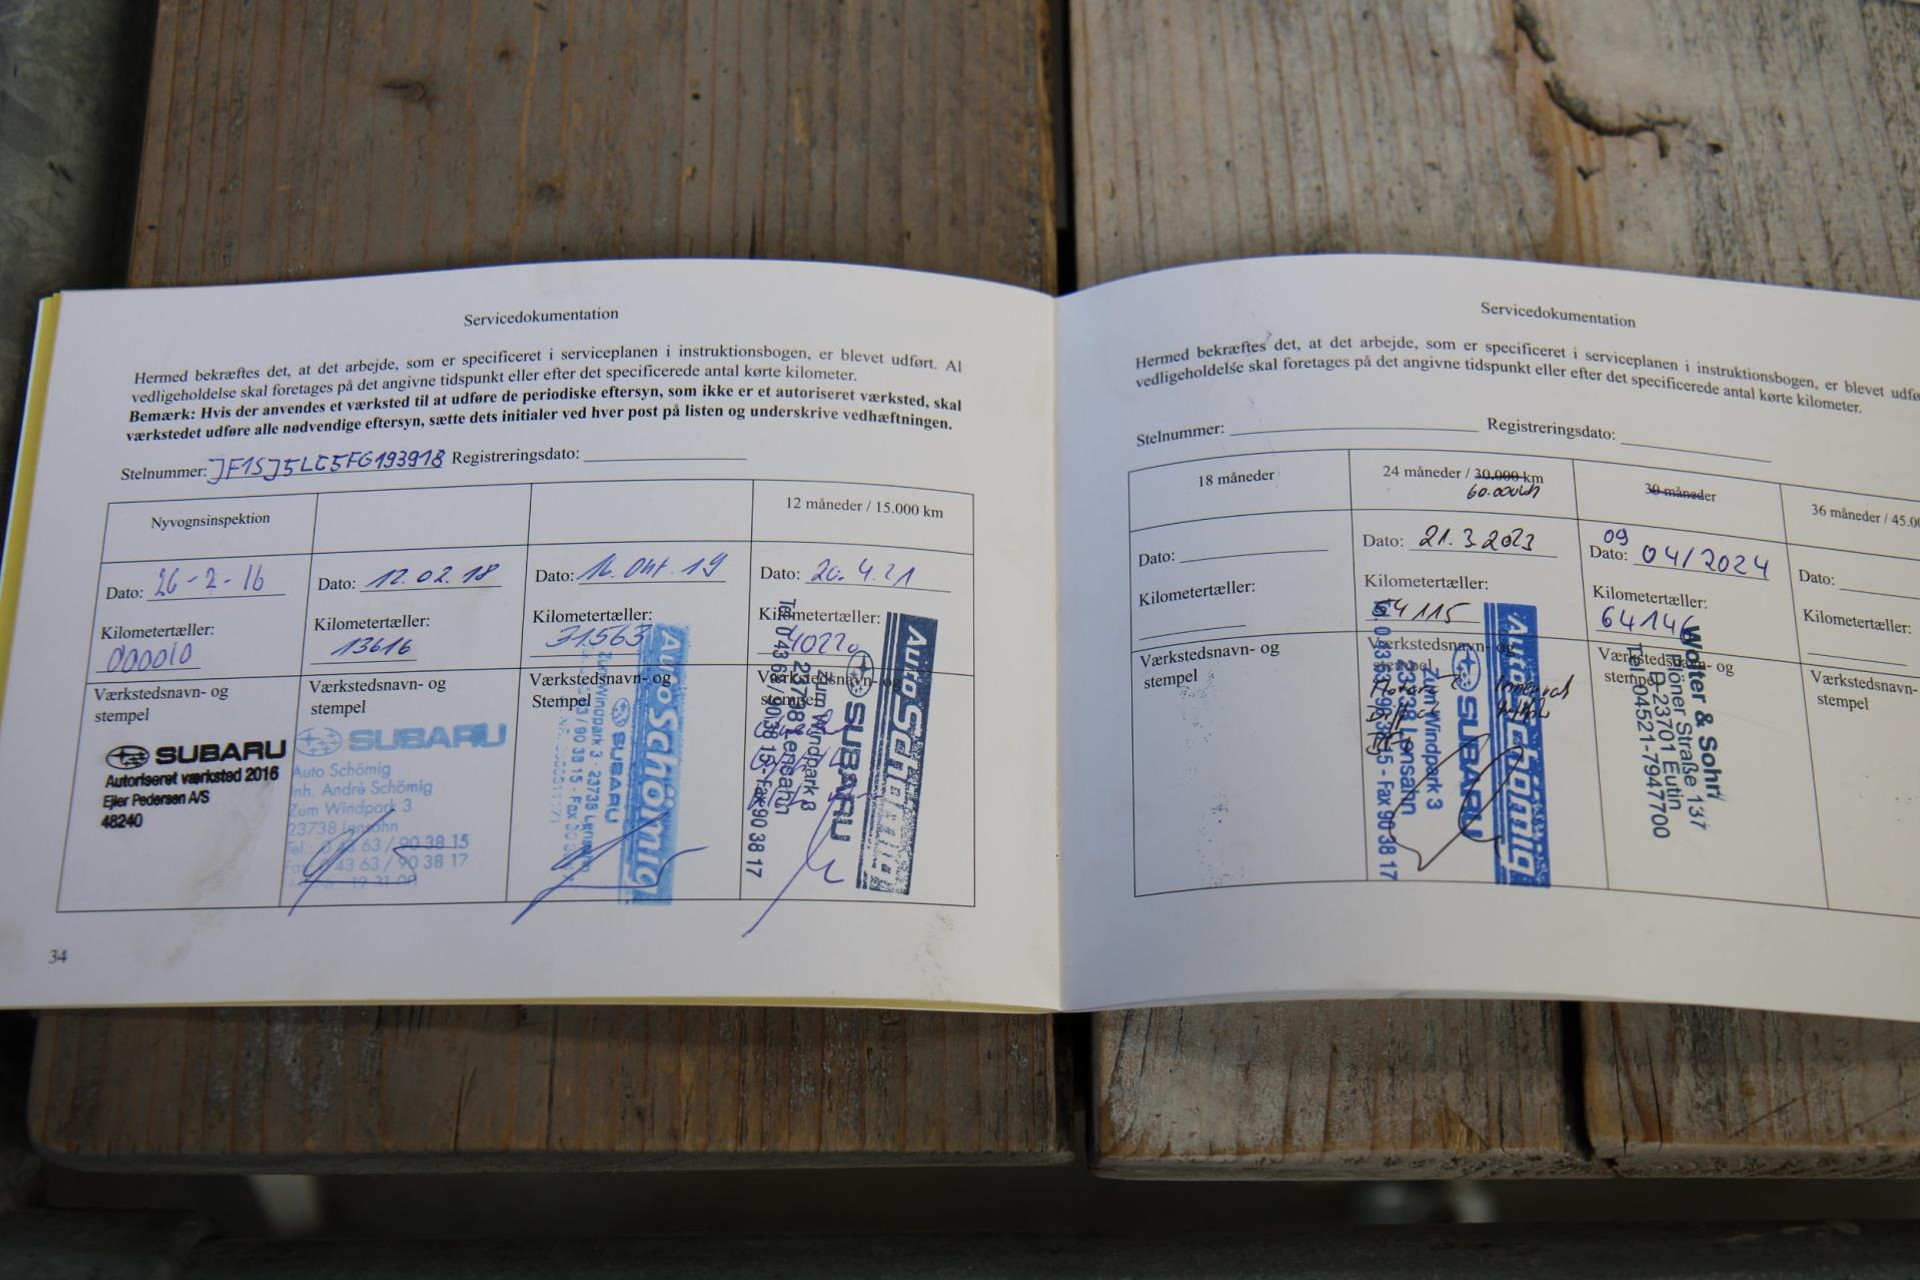 Servicedokumentation
Hermed bekræftes det, at det arbejde, som er specificeret i serviceplanen i instruktionsbogen, er blevet udført. Al
vedligeholdelse skal foretages på det angivne tidspunkt eller efter det specificerede antal kørte kilometer.
Bemærk: Hvis der anvendes et værksted til at udføre de periodiske eftersyn, som ikke er et autoriseret værksted, skal
værkstedet udføre alle nødvendige eftersyn, sætte dets initialer ved hver post på listen og underskrive vedhæftningen.
Stelnummer: JF1SJ5LC5FG193918 Registreringsdato:
Nyvognsinspektion
Dato: 26-2-16
Kilometertæller:
000010
Værkstedsnavn- og
stempel
SUBARU
Autoriseret værksted 2016
Ejler Pedersen A/S
48240
Dato: 12.02.18
Kilometertæller:
13616
Værkstedsnavn- og
stempel
SUBARU
Auto Schömig
Inh. André Schömig
Zum Windpark 3
23738 Lensahn
Tel.: 0 43 63 / 90 38 15
Fax: 0 43 63 / 90 38 17
Dato: 16. Okt. 19
Kilometertæller:
31563
Værkstedsnavn- og
Stempel
Auto Schömig
SUBARU
Zum Windpark 3 · 23738 Lensahn
12 måneder / 15.000 km
Dato: 20.4.21
Kilometertæller:
40220
Værkstedsnavn- og
stempel
Auto Schömig
SUBARU
Zum Windpark 3
23738 Lensahn
Tel. 0 43 63 / 90 38 15 - Fax 90 38 17
34
Servicedokumentation
Hermed bekræftes det, at det arbejde, som er specificeret i serviceplanen i instruktionsbogen, er blevet udfø
vedligeholdelse skal foretages på det angivne tidspunkt eller efter det specificerede antal kørte kilometer.
Stelnummer: Registreringsdato:
18 måneder
Dato:
Kilometertæller:
Værkstedsnavn- og
stempel
24 måneder / 30.000 km
60.000 km
Dato: 21.3.2023
Kilometertæller:
54115
Værkstedsnavn- og
stempel
Auto Schömig
SUBARU
Zum Windpark 3
23738 Lensahn
90 38 15 - Fax 90 38 17
30 måneder
Dato: 09 04/2024
Kilometertæller:
64146
Værkstedsnavn- og
stempel
Wolter & Sohn
Plöner Straße 137
D-23701 Eutin
Tel. 04521-7947700
36 måneder / 45.00
Dato:
Kilometertæller:
Værkstedsnavn-
stempel